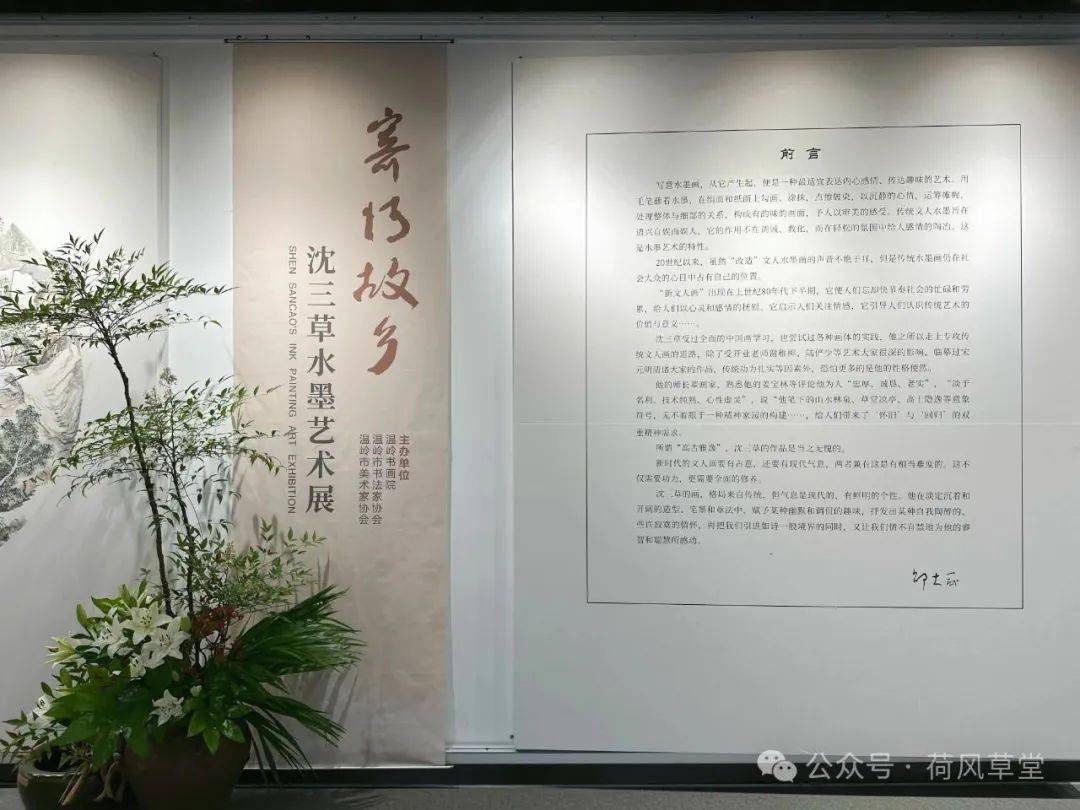 寄情故乡
沈三草水墨艺术展
SHEN SANCAO'S INK PAINTING ART EXHIBITION
主办单位
温岭书画院
温岭市书法家协会
温岭市美术家协会
前言
写意水墨画，从它产生起，便是一种最适宜表达内心感情、传达趣味的艺术。用
毛笔蘸着水墨，在绢面和纸面上勾画、涂抹，点缀皴染，以沉静的心情，运筹帷幄，
处理整体与细部的关系，构成有韵味的画面，予人以审美的感受。传统文人水墨旨在
遣兴自娱而娱人，它的作用不在训诫、教化，而在轻松的氛围中给人感情的陶冶。这
是水墨艺术的特性。
20世纪以来，虽然“改造”文人水墨画的声音不绝于耳，但是传统水墨画仍在社
会大众的心目中占有自己的位置。
“新文人画”出现在上世纪80年代下半期，它使人们忘却快节奏社会的忙碌和劳
累，给人们以心灵和感情的抚慰。它启示人们关注情感，它引导人们认识传统艺术的
价值与意义……。
沈三草受过全面的中国画学习，也尝试过各种画体的实践，他之所以走上专攻传
统文人画的道路，除了受开业老师谢稚柳、陆俨少等艺术大家很深的影响，临摹过宋
元明清诸大家的作品，传统功力扎实等因素外，恐怕更多的是他的性格使然。
他的师长辈画家，熟悉他的姜宝林等评论他为人“忠厚、诚恳、老实”，“淡于
名利、技术纯熟、心性虚灵”，说“他笔下的山水林泉、草堂凉亭、高士隐逸等意象
符号，无不着眼于一种精神家园的构建……，给人们带来了‘怀旧’与‘回归’的双
重精神需求。
所谓“高古雅逸”，沈三草的作品是当之无愧的。
新时代的文人画要有古意，还要有现代气息，两者兼有这是有相当难度的。这不
仅需要功力，更需要全面的修养。
沈三草的画，格局来自传统，但气息是现代的，有鲜明的个性。他在淡定沉着和
开阔的造型、笔墨和章法中，赋予某种幽默和调侃的趣味，抒发出某种自我陶醉的、
些许寂寞的情怀，再把我们引进如诗一般境界的同时，又让我们情不自禁地为他的睿
智和聪慧所感动。
邵大箴
公众号·荷风草堂